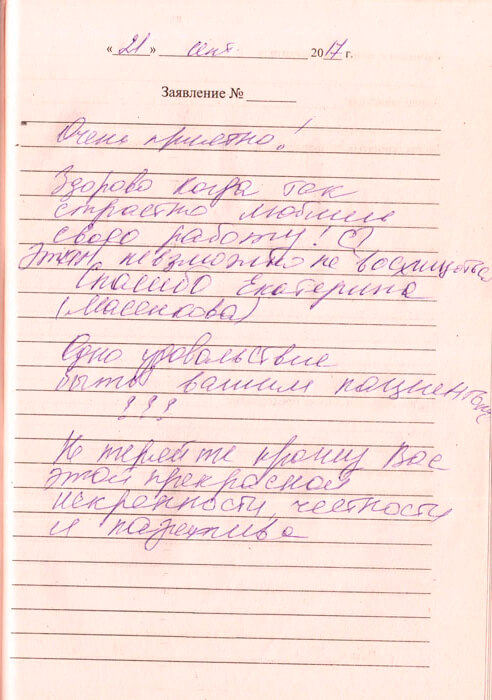 «21» сент. 2017 г.
Заявление №
Очень приятно!
Здорово когда так
страстно любишь
свою работу!
Этим невозможно не восхищаться
Спасибо Екатерина
(Масенкова)
Одно удовольствие
быть вашим пациентом
!!!
Не теряйте прошу Вас
этой прекрасной
искренности, честности
и позитива